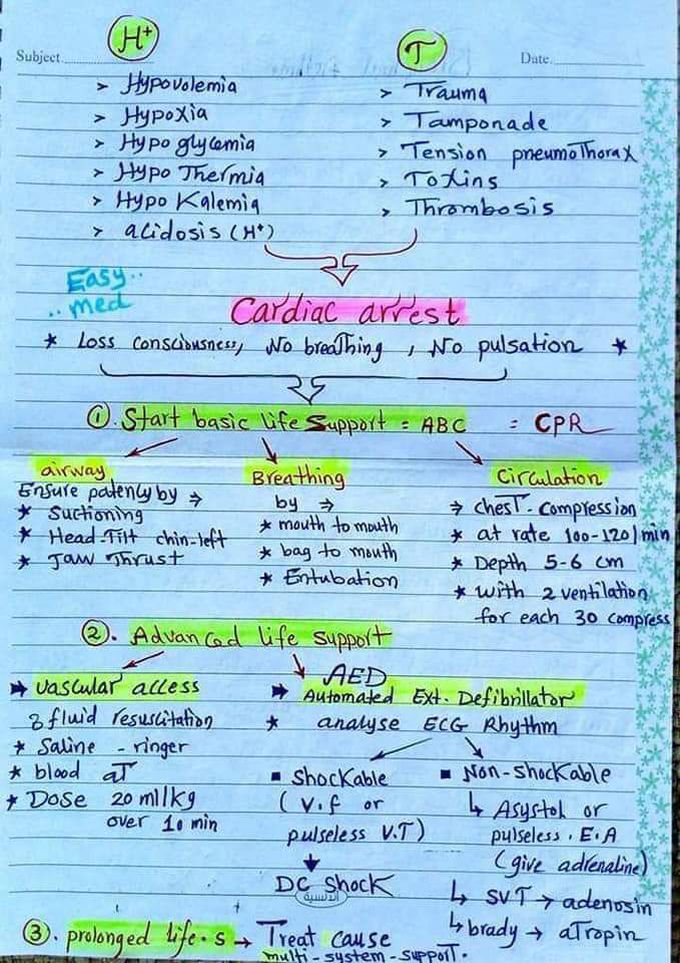 H+
T
Subject
Date.
> Hypovolemia
> Hypoxia
> Hypo glycemia
> Hypo Thermia
> Hypo Kalemia
> acidosis (H+)
> Trauma
> Tamponade
> Tension pneumoThorax
> Toxins
> Thrombosis
Easy..
..med
Cardiac arrest
* Loss consciousness, No breathing, No pulsation *
①. Start basic life Support = ABC = CPR
airway
Ensure patency by ⇒
* Suctioning
* Head-Tilt chin-left
* Jaw Thrust
Breathing
by ⇒
* mouth to mouth
* bag to mouth
* Entubation
Circulation
⇒ chesT. compression
* at rate 100-120/min
* Depth 5-6 cm
* with 2 ventilation
for each 30 compress
②. Advanced life support
➡ vascular access
& fluid resuscitation
* Saline - ringer
* blood aT
* Dose 20 ml/kg
over 10 min
AED
➡ Automated Ext. Defibrillator
* analyse ECG Rhythm
▪ Shockable
(V.f or
pulseless V.T)
DC Shock
▪ Non-Shockable
↳ Asystol or
pulseless. E.A
(give adrenaline)
↳ SVT → adenosin
↳ brady → aTropin
③. prolonged life.s → Treat cause
multi-system-supporT.